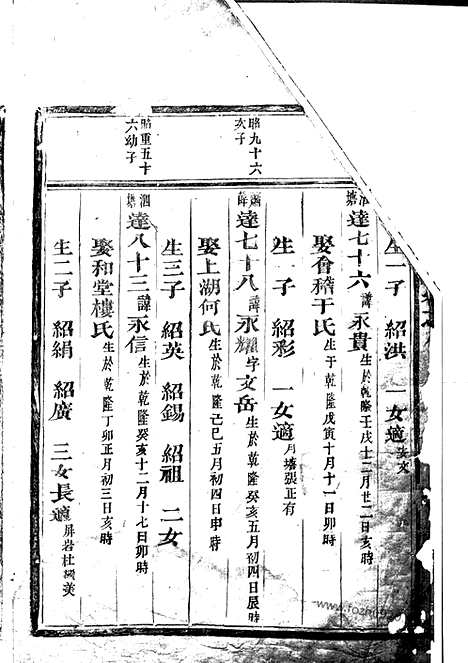 生一子 紹洪 一女適
達七十六諱永貴生於乾隆壬戌十二月廿二日亥時
娶會稽于氏生于乾隆戊寅十月十一日卯時
生一子 紹彩 一女適月塘張正有
昭九十六次子
達七十八諱永耀字文岳生於乾隆癸亥五月初四日辰時
娶上湖何氏生於乾隆己巳五月初四日申時
生三子 紹英 紹錫 紹祖 二女
昭重五十六幼子
泗塘達八十三諱永信生於乾隆癸亥十二月十七日卯時
娶和堂樓氏生於乾隆丁卯正月初三日亥時
生二子 紹絹 紹廣 三女長適屏岩杜
www.fozhu920.com